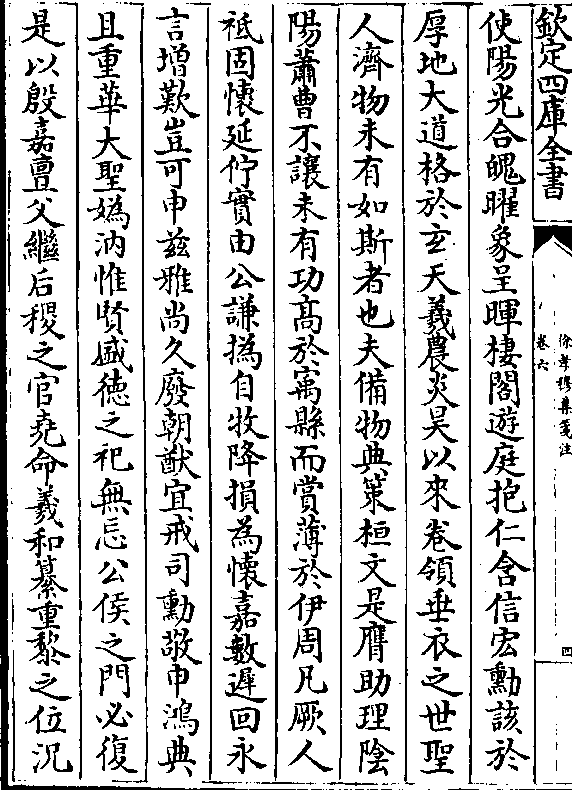 欽定四庫全書
徐孝穆集箋注
卷六
四
使陽光合魄曜象呈暉棲閣遊庭抱仁含信宏勳該於
厚地大道格於玄天羲農炎昊以來卷領垂衣之世聖
人濟物未有如斯者也夫備物典策桓文是膺助理陰
陽蕭曹不讓未有功髙於寓縣而賞薄於伊周凡厥人
祗固懐延佇實由公謙撝自牧降損為懐嘉數遲回永
言增歎豈可申兹雅尚久廢朝猷宜戒司勳敬申鴻典
且重華大聖媯汭惟賢盛徳之祀無忘公侯之門必復
是以殷嘉亶父繼后稷之官堯命羲和纂重黎之位況